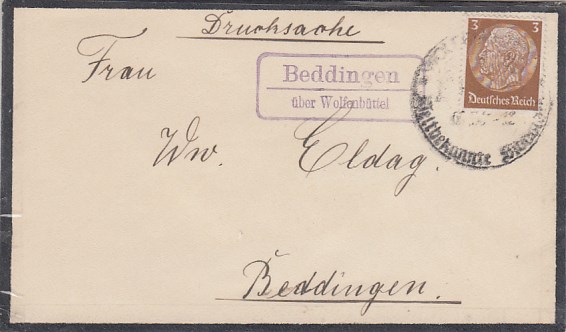 Drucksache
3 3
Deutsches Reich
Beddingen
über Wolfenbüttel
Frau
Ww. Eldag.
Beddingen.